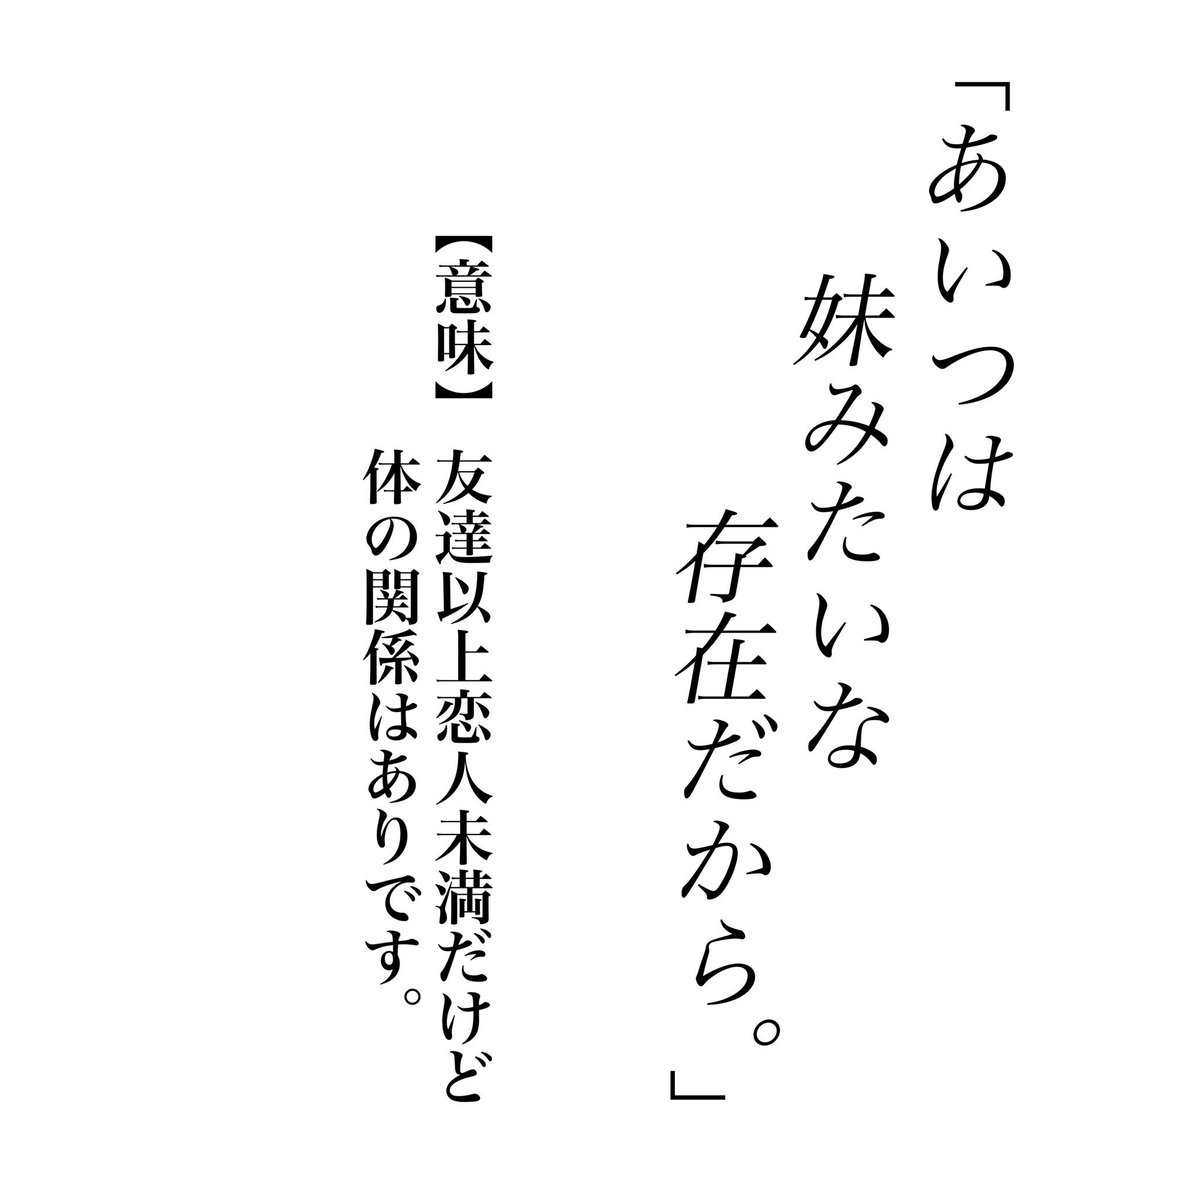 「あいつは
妹みたいな
存在だから。」
【意味】 友達以上恋人未満だけど
体の関係はありです。